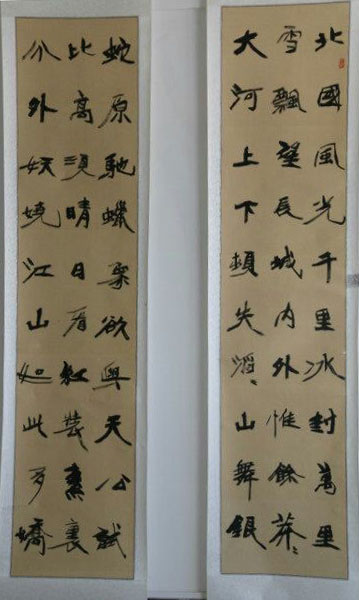 北國風光千里冰封萬里
雪飄望長城内外惟餘莽〻
大河上下頓失滔〻山舞銀
蛇原馳蠟象欲與天公試
比高須晴日看紅裝素裹
分外妖嬈江山如此多嬌